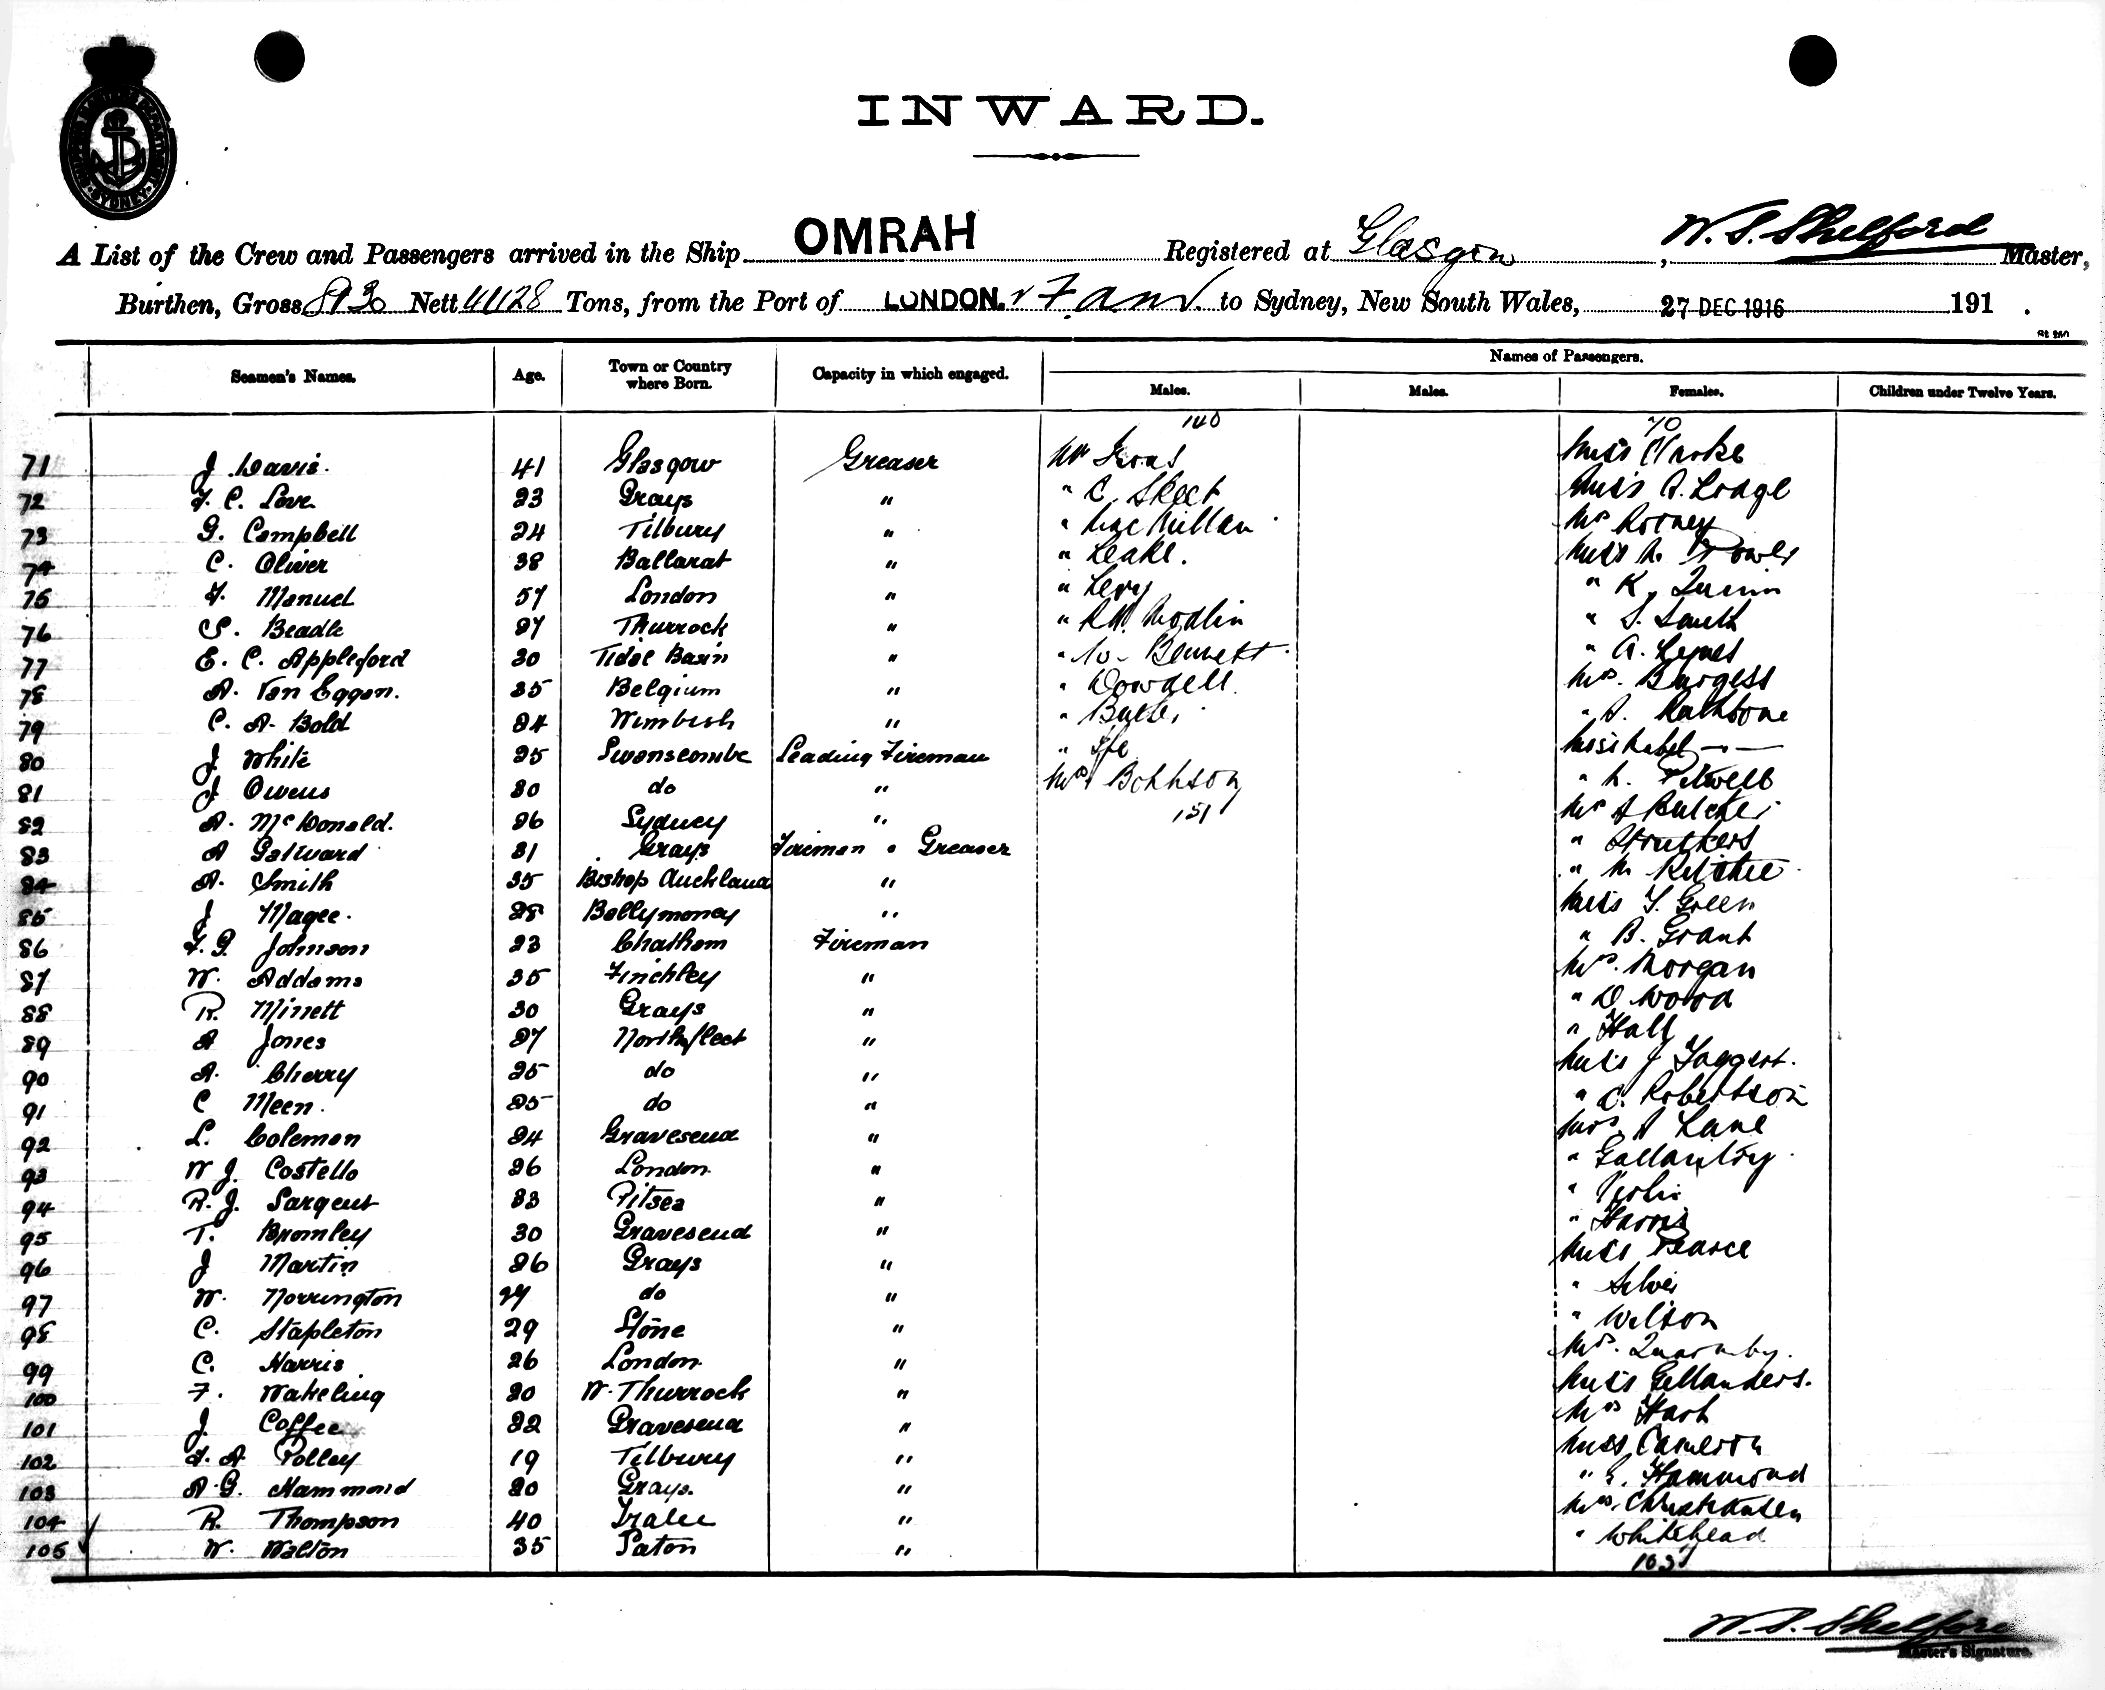 INWARD.
A List of the Crew and Passengers arrived in the Ship OMRAH Registered at Glasgow, W. S. Shelford Master,
Burthen, Gross 8130 Nett 4428 Tons, from the Port of LONDON. to Sydney, New South Wales, 27 DEC 1916 191 .
Names of Passengers.
Seamen's Names. Age. Town or Country where Born. Capacity in which engaged. Males. Males. Females. Children under Twelve Years.
140 70
71 J. Davis. 41 Glasgow Greaser Mr Irons Miss Clarke
72 F. C. Love 23 Grays " " C. Skeet Miss A. Lodge
73 G. Campbell 24 Tilbury " " MacMillan Mrs Rooney
74 C. Oliver 38 Ballarat " " Leake. Miss A. Power
75 F. Manuel 57 London " " Levy " K. Quinn
76 S. Beadle 27 Thurrock " " Modlin " S. Smith
77 E. C. Appleford 30 Tidal Basin " " W. Bennett " A. Lynes
78 A. Van Eggen. 35 Belgium " " Dowdell. Mrs. Burgess
79 C. A. Bold 24 Wimbish " " " A. Rathbone
80 J. White 25 Swanscombe Leading Fireman " Miss Mabel
81 J. Owens 30 do " Mrs "
82 A. McDonald. 26 Sydney " 151 Mrs A Butcher
83 A Gallward 31 Grays Fireman & Greaser " Struthers
84 A. Smith 35 Bishop Auckland " " M. Ritchie
85 J Magee. 28 Ballymoney " Miss Y. Green
86 F. G. Johnson 23 Chatham Fireman " B. Grant
87 W. Addams 35 Finchley " Mrs. Morgan
88 R. Minett 30 Grays " " D. Wood
89 A Jones 27 Northfleet " " Hall
90 A. Cherry 25 do " Miss J Taggert.
91 C Meen. 25 do " " C. Robertson
92 L. Coleman 24 Gravesend " Mrs. A Lane
93 W J. Costello 26 London " " Gallantry
94 R. J. Sargent 33 Pitsea " "
95 T. Bromley 30 Gravesend " " Harris
96 J Martin 26 Grays " Miss Pearce
97 W. Norrington 27 do " " Silver
98 C. Stapleton 29 Stone " " Wilson
99 C. Harris 26 London " Mrs. Quarmby.
100 F. Wakeling 20 W. Thurrock " Miss Gillanders.
101 J. Coffee 22 Gravesend " Mrs Hart
102 F. A Polley 19 Tilbury " Miss Cameron
103 A. G. Hammond 20 Grays. " " E. Hammond
104 R. Thompson 40 Tralee " Mrs. Christiansen
105 W. Walton 35 Paton " " Whitehead
W. S. Shelford
Master's Signature.